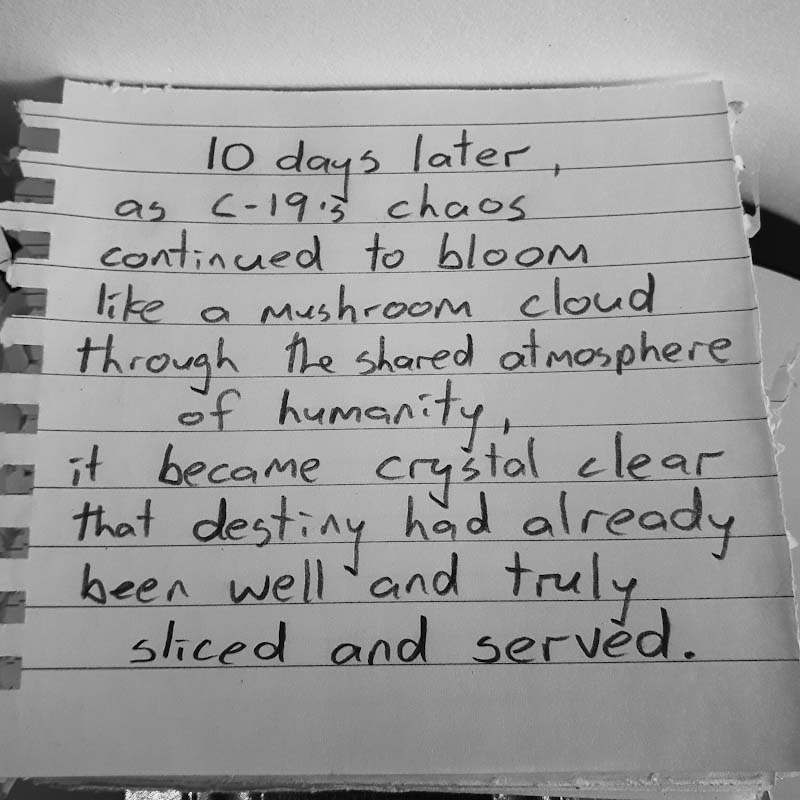 10 days later,
as C-19's chaos
continued to bloom
like a mushroom cloud
through the shared atmosphere
of humanity,
it became crystal clear
that destiny had already
been well and truly
sliced and served.